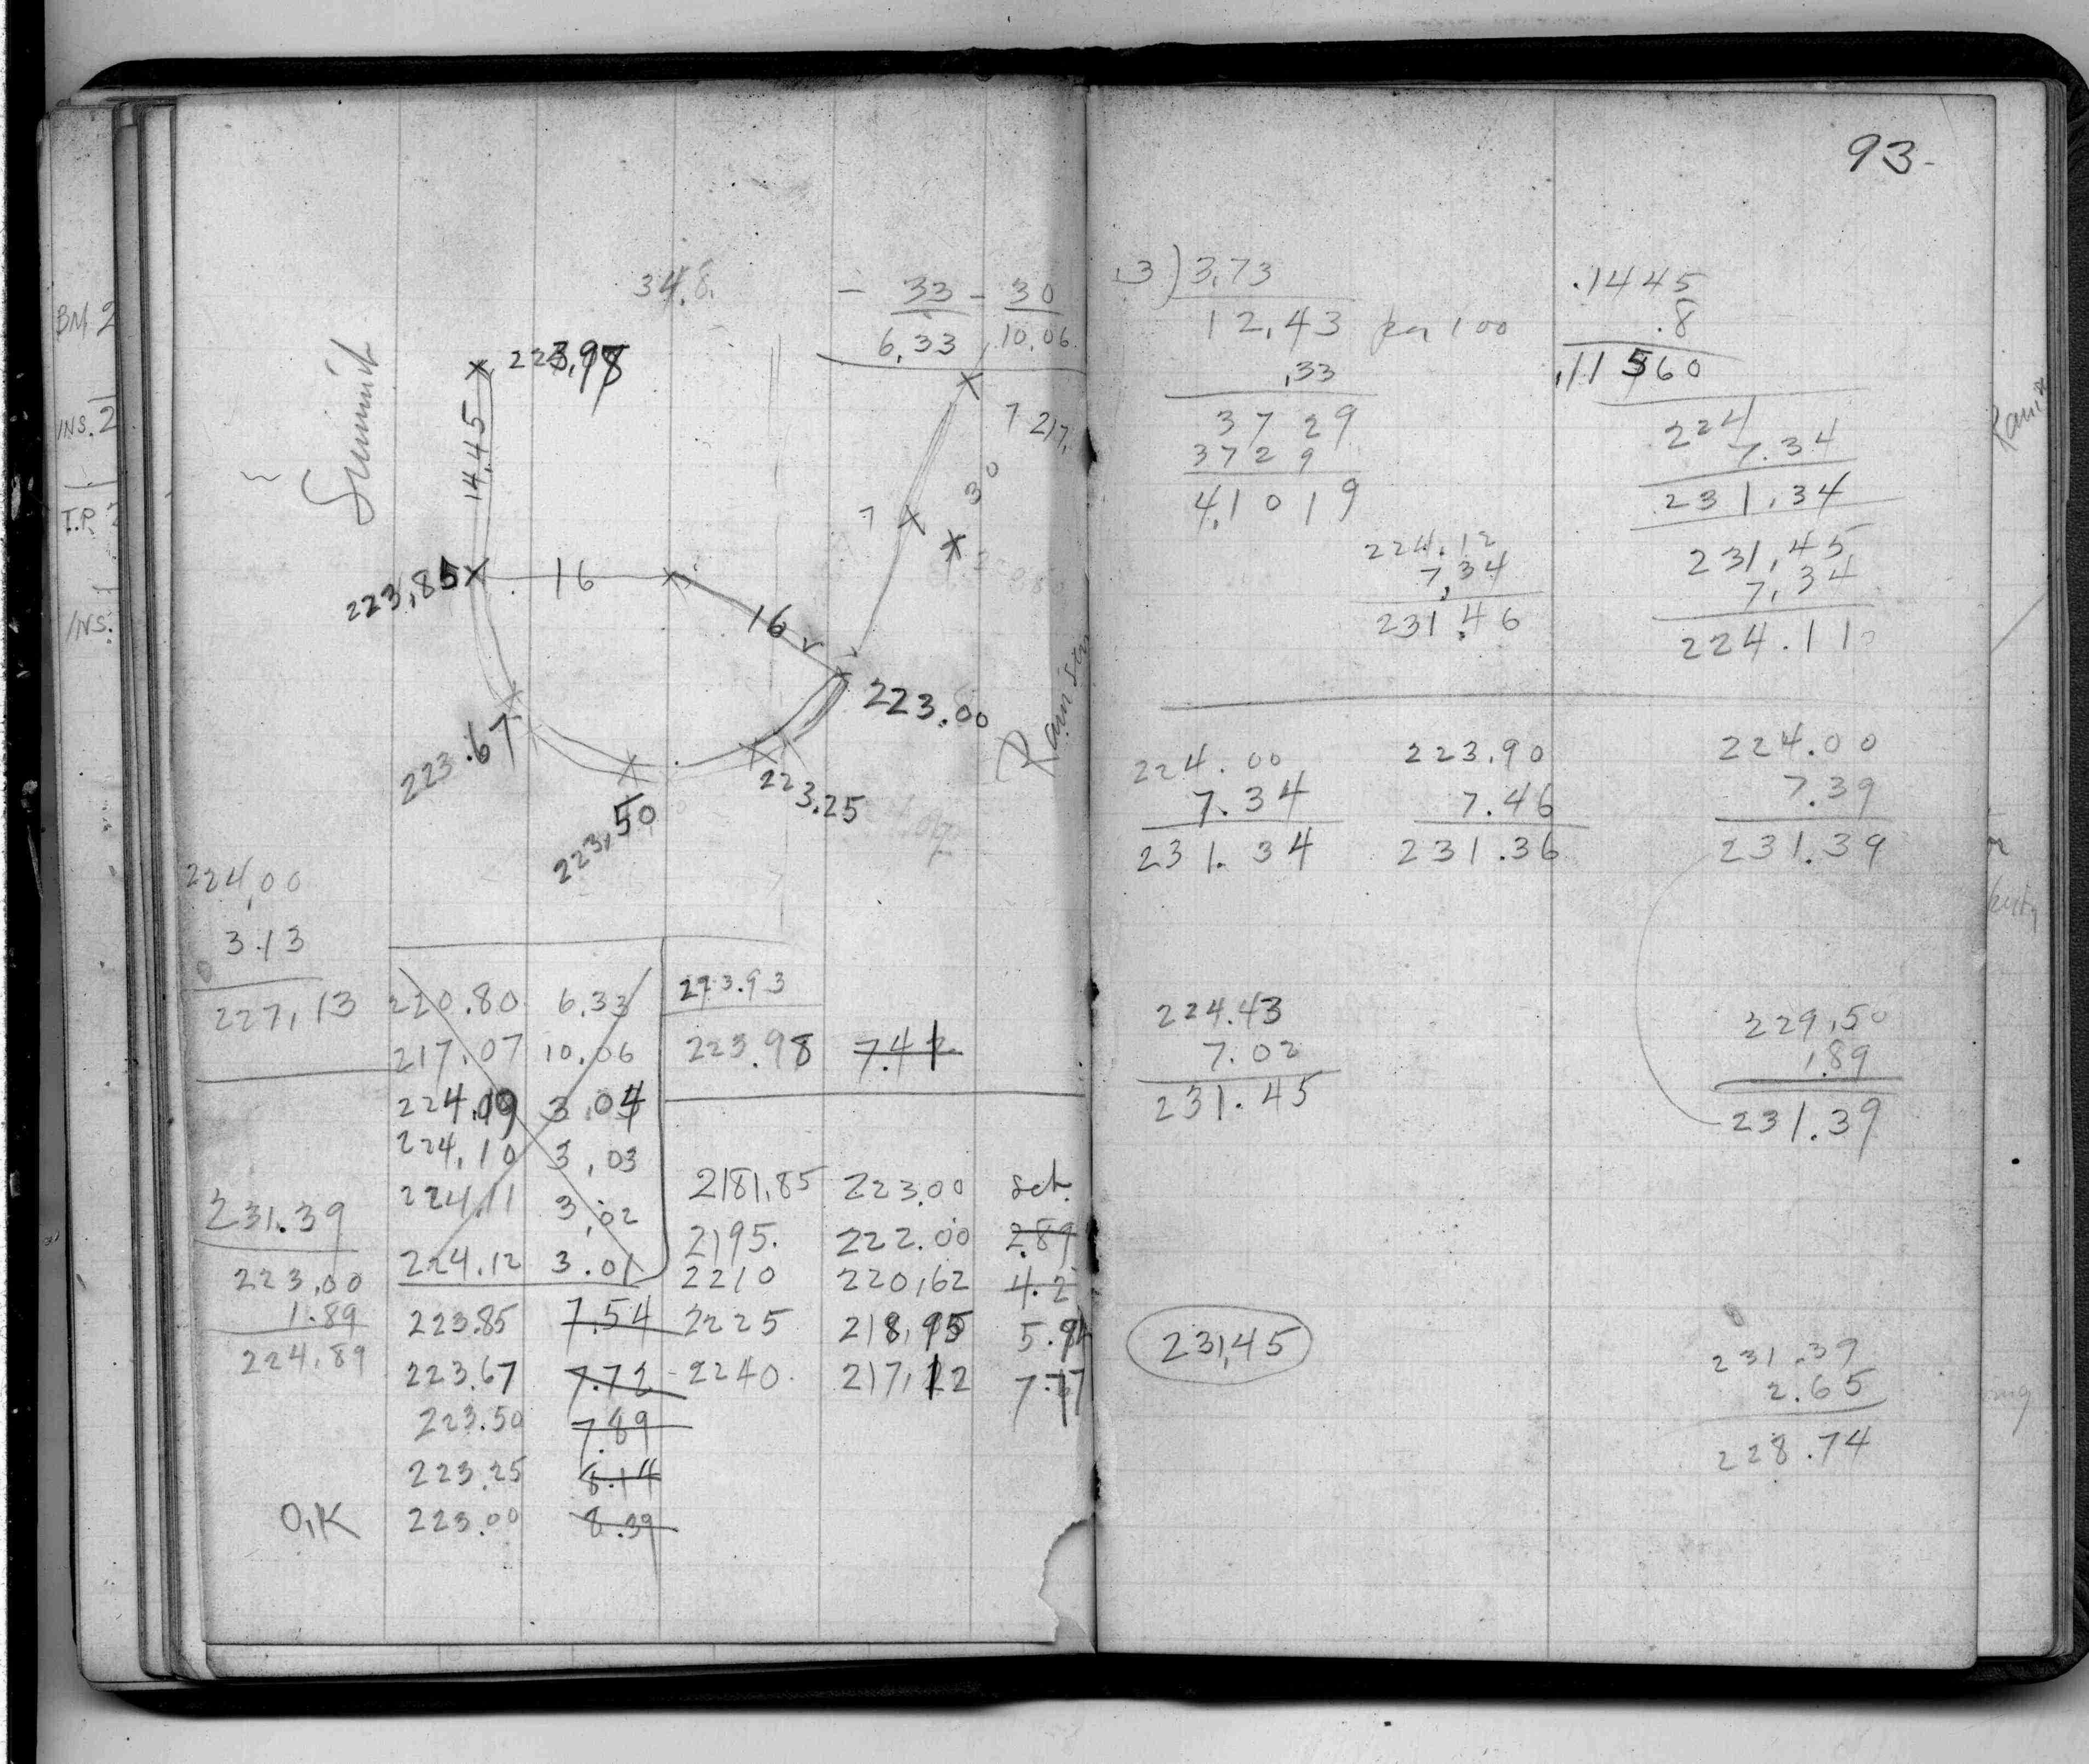 93-
34.8.
- 33 - 30
6.33 10.06
Summit
223.98
14.45
7 217.
30
7
223.85
16
16
223.00
Ramsey
223.67
223.50
223.25
224.00
3.13
227.13
220.80 6.33
217.07 10.06
224.09 3.04
224.10 3.03
224.11 3.02
224.12 3.01
223.93
223.98 7.41
231.39
223.00
1.89
224.89
223.85 7.54
223.67 7.72
223.50 7.89
223.25 8.14
O.K 223.00 8.39
2181.85 223.00 set.
2195. 222.00 2.89
2210 220.62 4.2
2225 218.95 5.9
2240. 217.12 7.77
.3 ) 3.73
12.43 per 100
.33
3729
3729
4.1019
224.12
7.34
231.46
.1445
.8
.11560
224
7.34
231.34
231.45
7.34
224.11
224.00
7.34
231.34
223.90
7.46
231.36
224.00
7.39
231.39
224.43
7.02
231.45
229.50
1.89
231.39
231.45
231.39
2.65
228.74
BM 2
INS. 2
T.P. 2
INS.